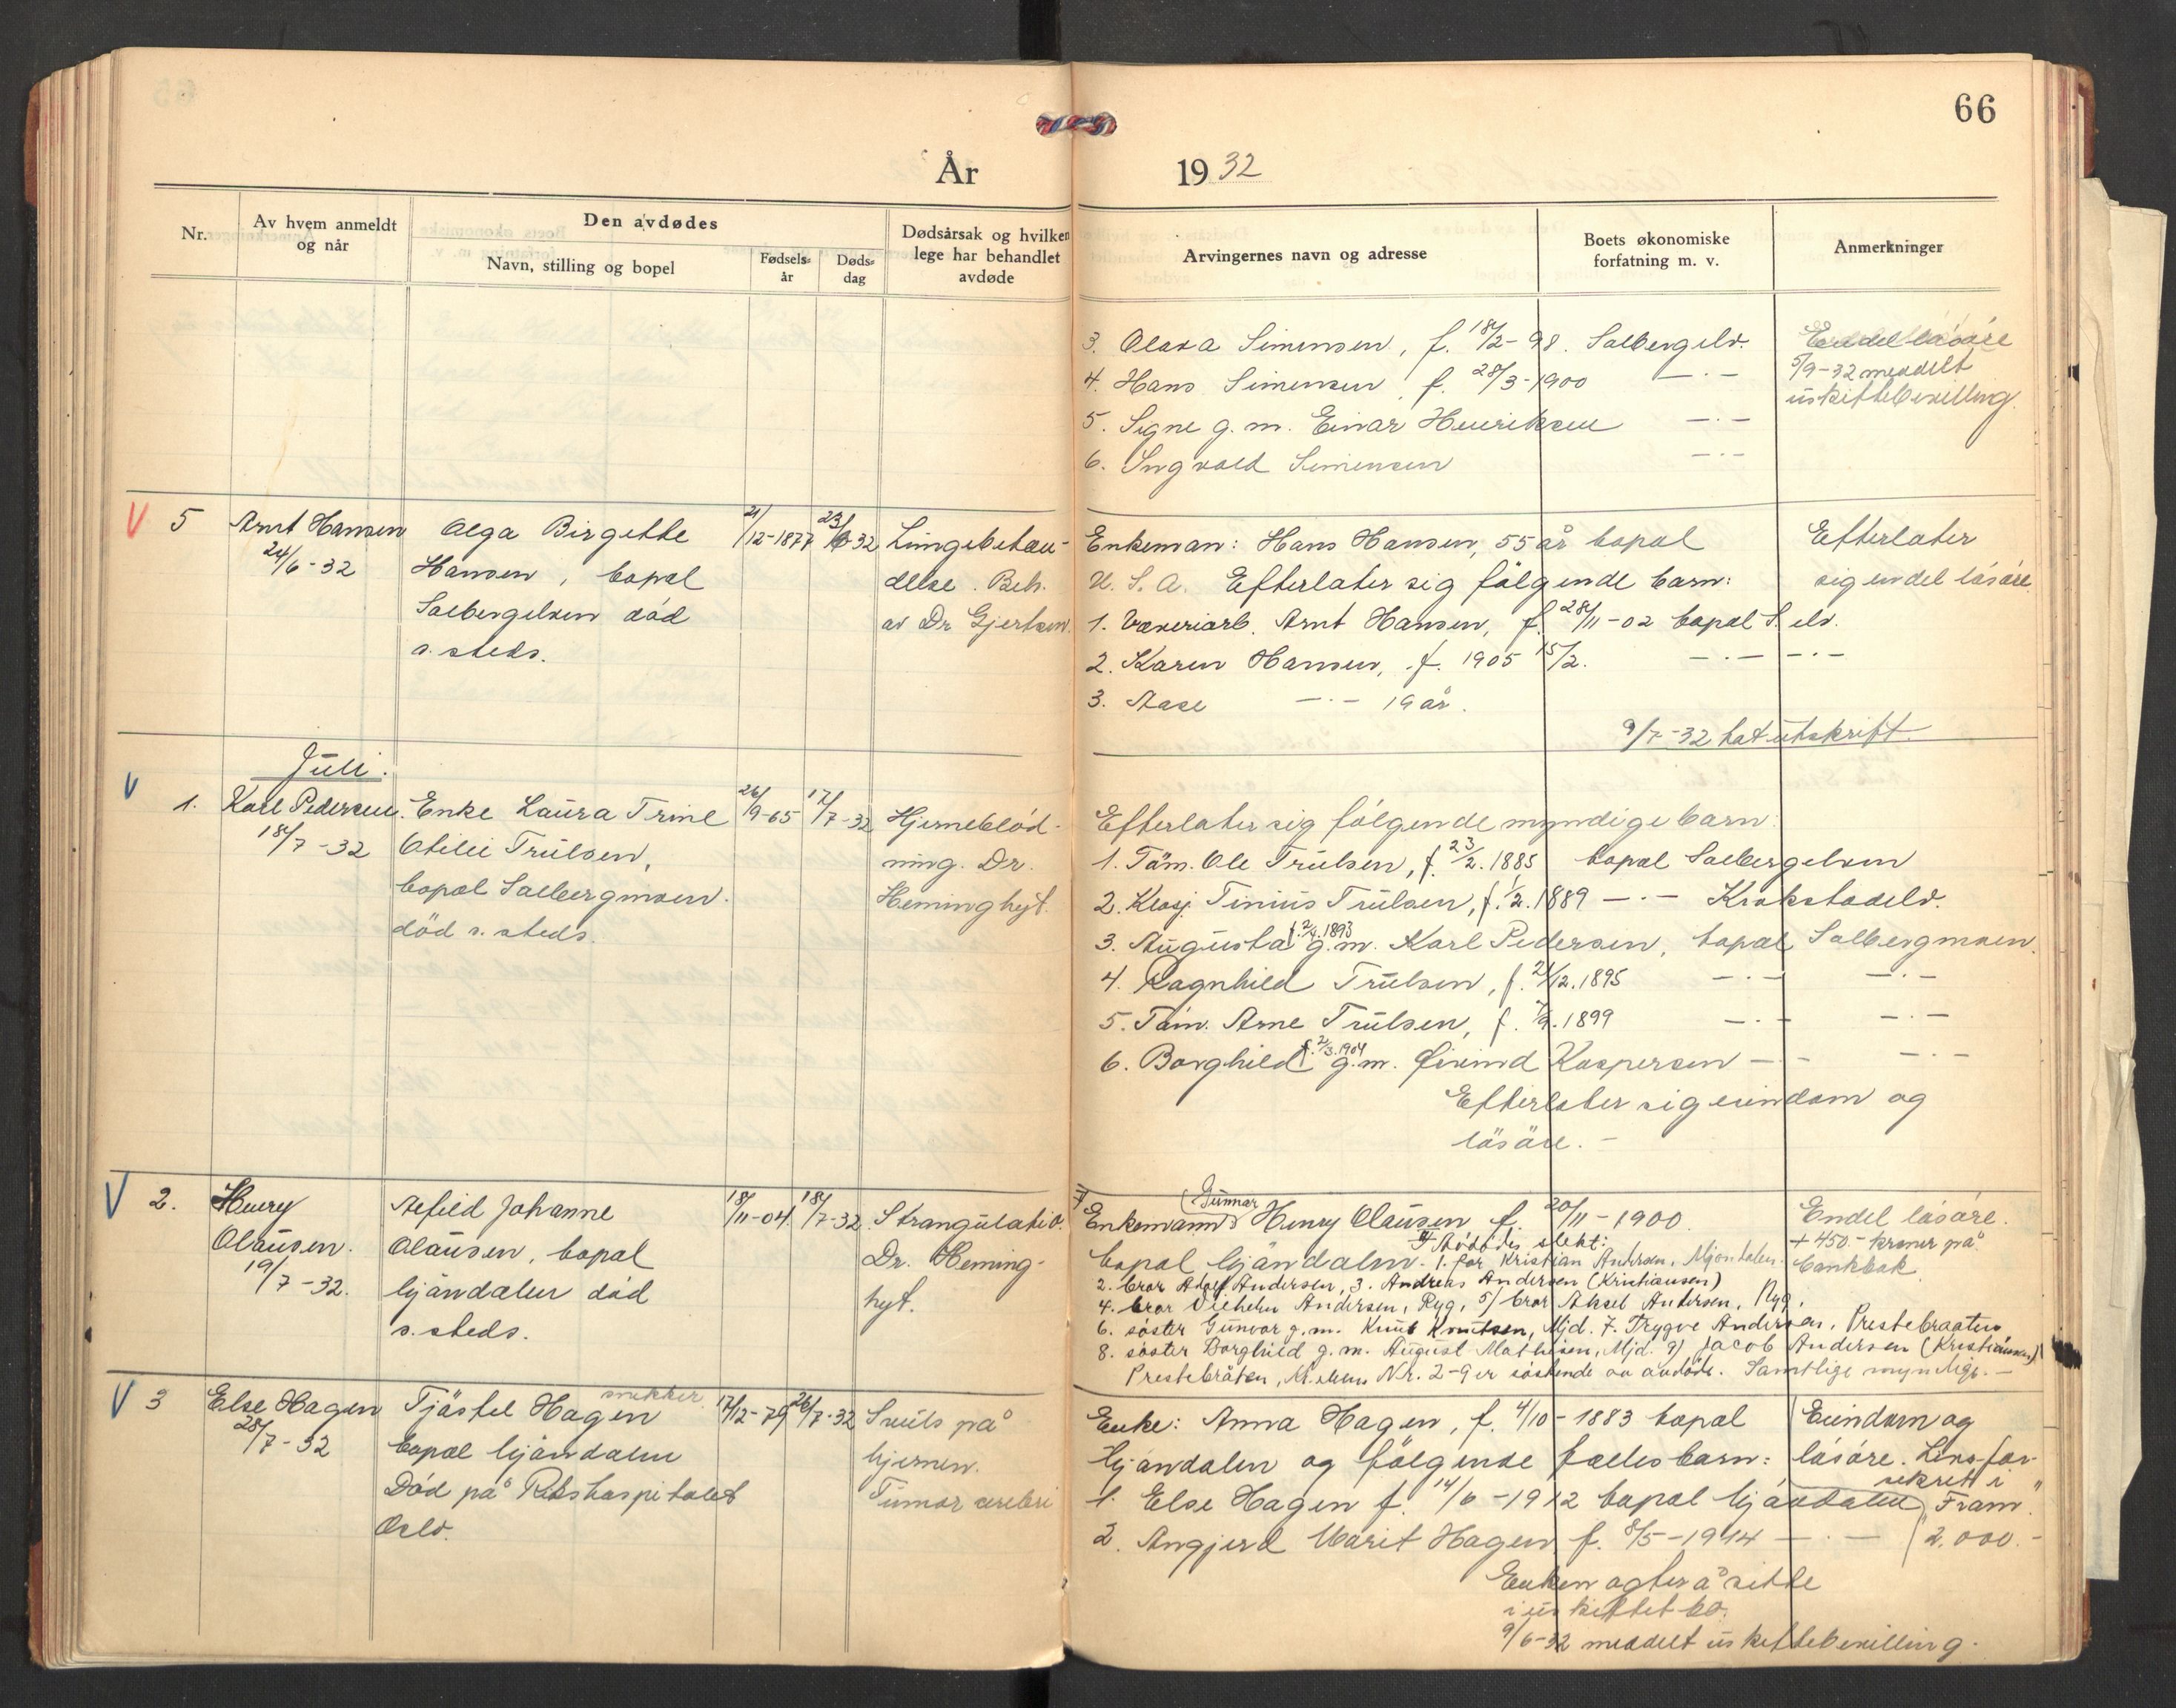 66
År 1932
Nr.
Av hvem anmeldt og når
Den avdødes
Navn, stilling og bopel
Fødselsår
Dødsdag
Dødsårsak og hvilken lege har behandlet avdøde
Arvingernes navn og adresse
Boets økonomiske forfatning m. v.
Anmerkninger
3. Olava Simensen, f. 18/2-98. Solbergelv.
4. Hans Simensen, f. 28/3-1900 —·—
5. Signe g. m. Einar Henriksen —·—
6. Ingvald Simensen —·—
Endel løsøre
5/9-32 meddelt
uskiftebevilling.
V 5
Arnt Hansen
24/6-32
Olga Birgitte
Hansen, bopel
Solbergelven død
s. steds.
21/12-1877
23/6-32
Lungebetæn-
delse. Beh.
av Dr Gjertsen.
Enkeman: Hans Hansen, 55 år bopel
U. S. A. Efterlater sig følgende barn:
1. Væveriarb. Arnt Hansen, f. 28/11-02 bopel S. elv.
2. Karen Hansen, f. 1905 15/2. —·— —·—
3. Aase —·— 19 år.
9/7-32 tat utskrift.
Efterlater
sig endel løsøre.
Juli.
V 1.
Karl Pedersen.
18/7-32
Enke Laura Trine
Otilie Trulsen,
bopel Solbergmoen.
død s. steds.
26/9-65
17/7-32
Hjerneblød-
ning. Dr.
Heminghyt.
Efterlater sig følgende myndige barn:
1. Tøm. Ole Trulsen, f. 23/2. 1885 bopel Solbergelven
2. Tinius Trulsen, f. 1/2. 1889 —·— Krokstadelv.
3. Augusta f. 2/4. 1893 g. m. Karl Pedersen, bopel Solbergmoen.
4. Ragnhild Trulsen, f. 21/12. 1895 —·— —·—
5. Tøm. Arne Trulsen, f. 1899 —·— —·—
6. Borghild f. 2/3. 1904 g. m. Øivind Kaspersen —·— —·—
Efterlater sig eiendom og
løsøre. —
V 2.
Henry
Olausen.
19/7-32.
Alfild Johanne
Olausen, bopel
Mjøndalen død
s. steds.
18/11-04.
18/7-32.
Strangulatio.
Dr. Heming-
hyt.
Enkemann Gunnar Henry Olausen f. 20/11-1900.
bopel Mjøndalen. Avdødes slekt: 1. far Kristian Andersen, Mjøndalen.
2. bror Adolf Andersen, 3. Andreas Andersen (Kristiansen)
4. bror Vilhelm Andersen, Ryg, 5/ bror Aksel Andersen, Ryg,
6. søster Gunvor g. m. Knut Knutsen, Mjd. 7. Trygve Andersen, Prestebraaten
8. søster Borghild g. m. August Mathisen, Mjd. 9) Jacob Andersen (Kristiansen)
Prestebråten, Nr. 2-9 er søskende av avdøde. Samtlige myndige. —
Endel løsøre.
+ 450.- kroner på
bankbok.
V 3
Else Hagen
28/7-32
Tjøstel Hagen snekker
bopel Mjøndalen
Død på Rikshospitalet
Oslo.
17/12-79
26/7-32
Svuls på
hjernen.
Tumor cerebri
Enke: Anna Hagen, f. 4/10-1883 bopel
Mjøndalen og følgende fælles barn:
1. Else Hagen f. 14/6-1912 bopel Mjøndalen
2. Angjerd Marit Hagen f. 8/5-1914 —·—
Enken agter å sitte
i uskiftet bo.
9/6-32 meddelt uskiftebevilling.
Eiendom og
løsøre. Livsfor-
sikret i
"Fram"
2.000.-